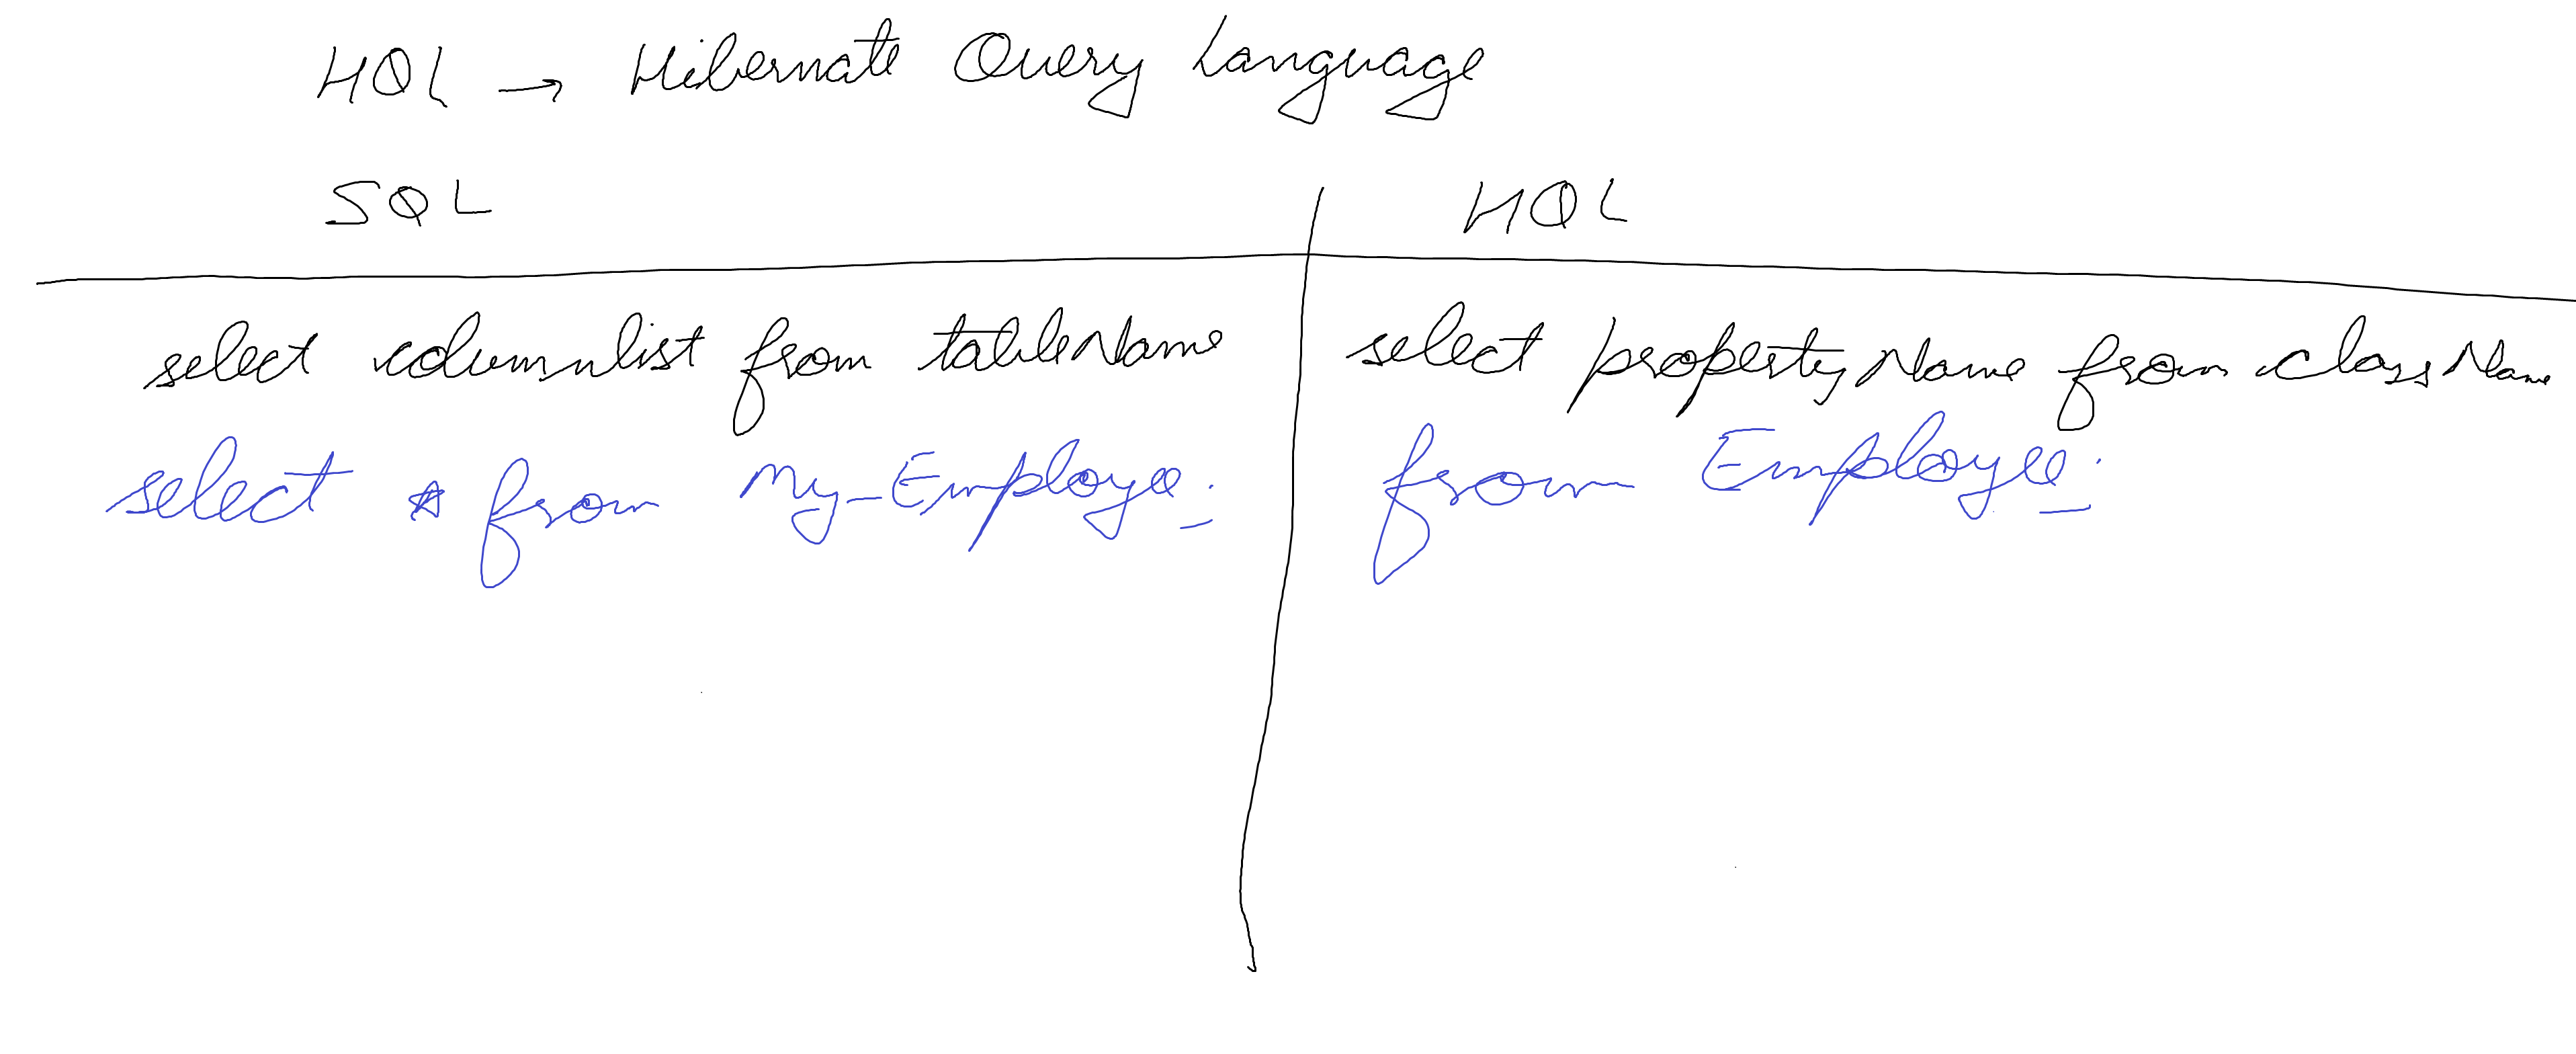 HQL → Hibernate Query Language
SQL HQL
select columnlist from tableName select propertyName from className
select * from My-Employee; from Employee;